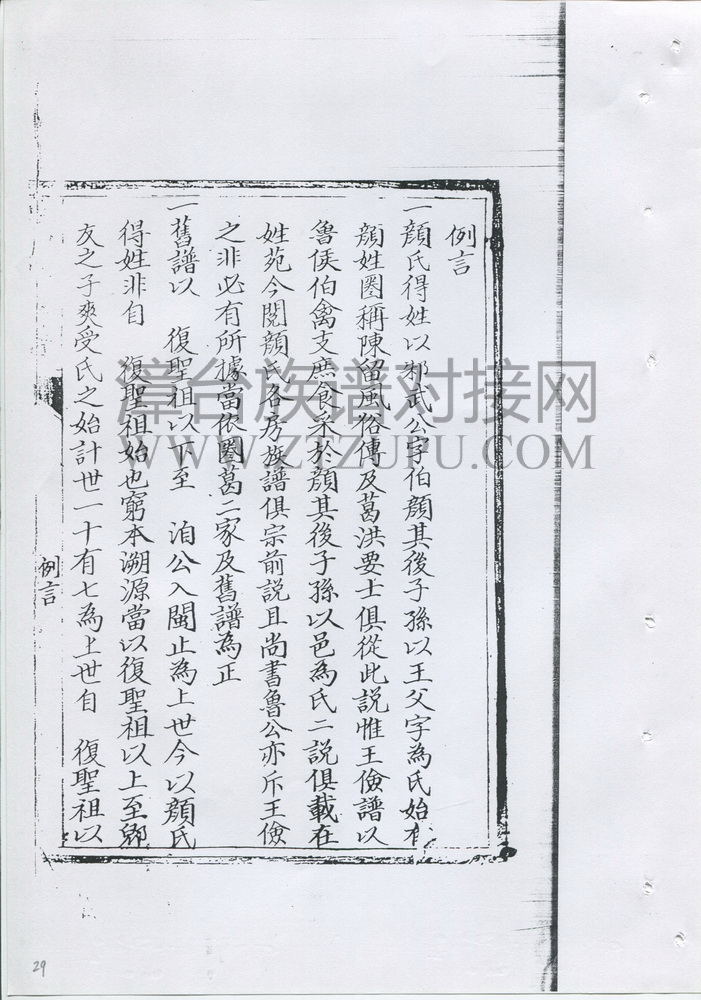 例言
一顔氏得姓以邾武公字伯顔其後子孫以王父字為氏始有
顔姓圈稱陳留風俗傳及葛洪要士俱從此説惟王儉譜以
魯侯伯禽支庶食采於顔其後子孫以邑為氏二説俱載在
姓苑今閲顔氏各房族譜俱宗前説且尚書魯公亦斥王儉
之非必有所據當依圈葛二家及舊譜為正
一舊譜以 復聖祖以下至 洎公入閩止為上世今以顔氏
得姓非自 復聖祖始也窮本溯源當以復聖祖以上至郳
友之子爽受氏之始計世一十有七為上世自 復聖祖以
例言
29
漳台族谱对接网
WWW.ZTZUPU.COM